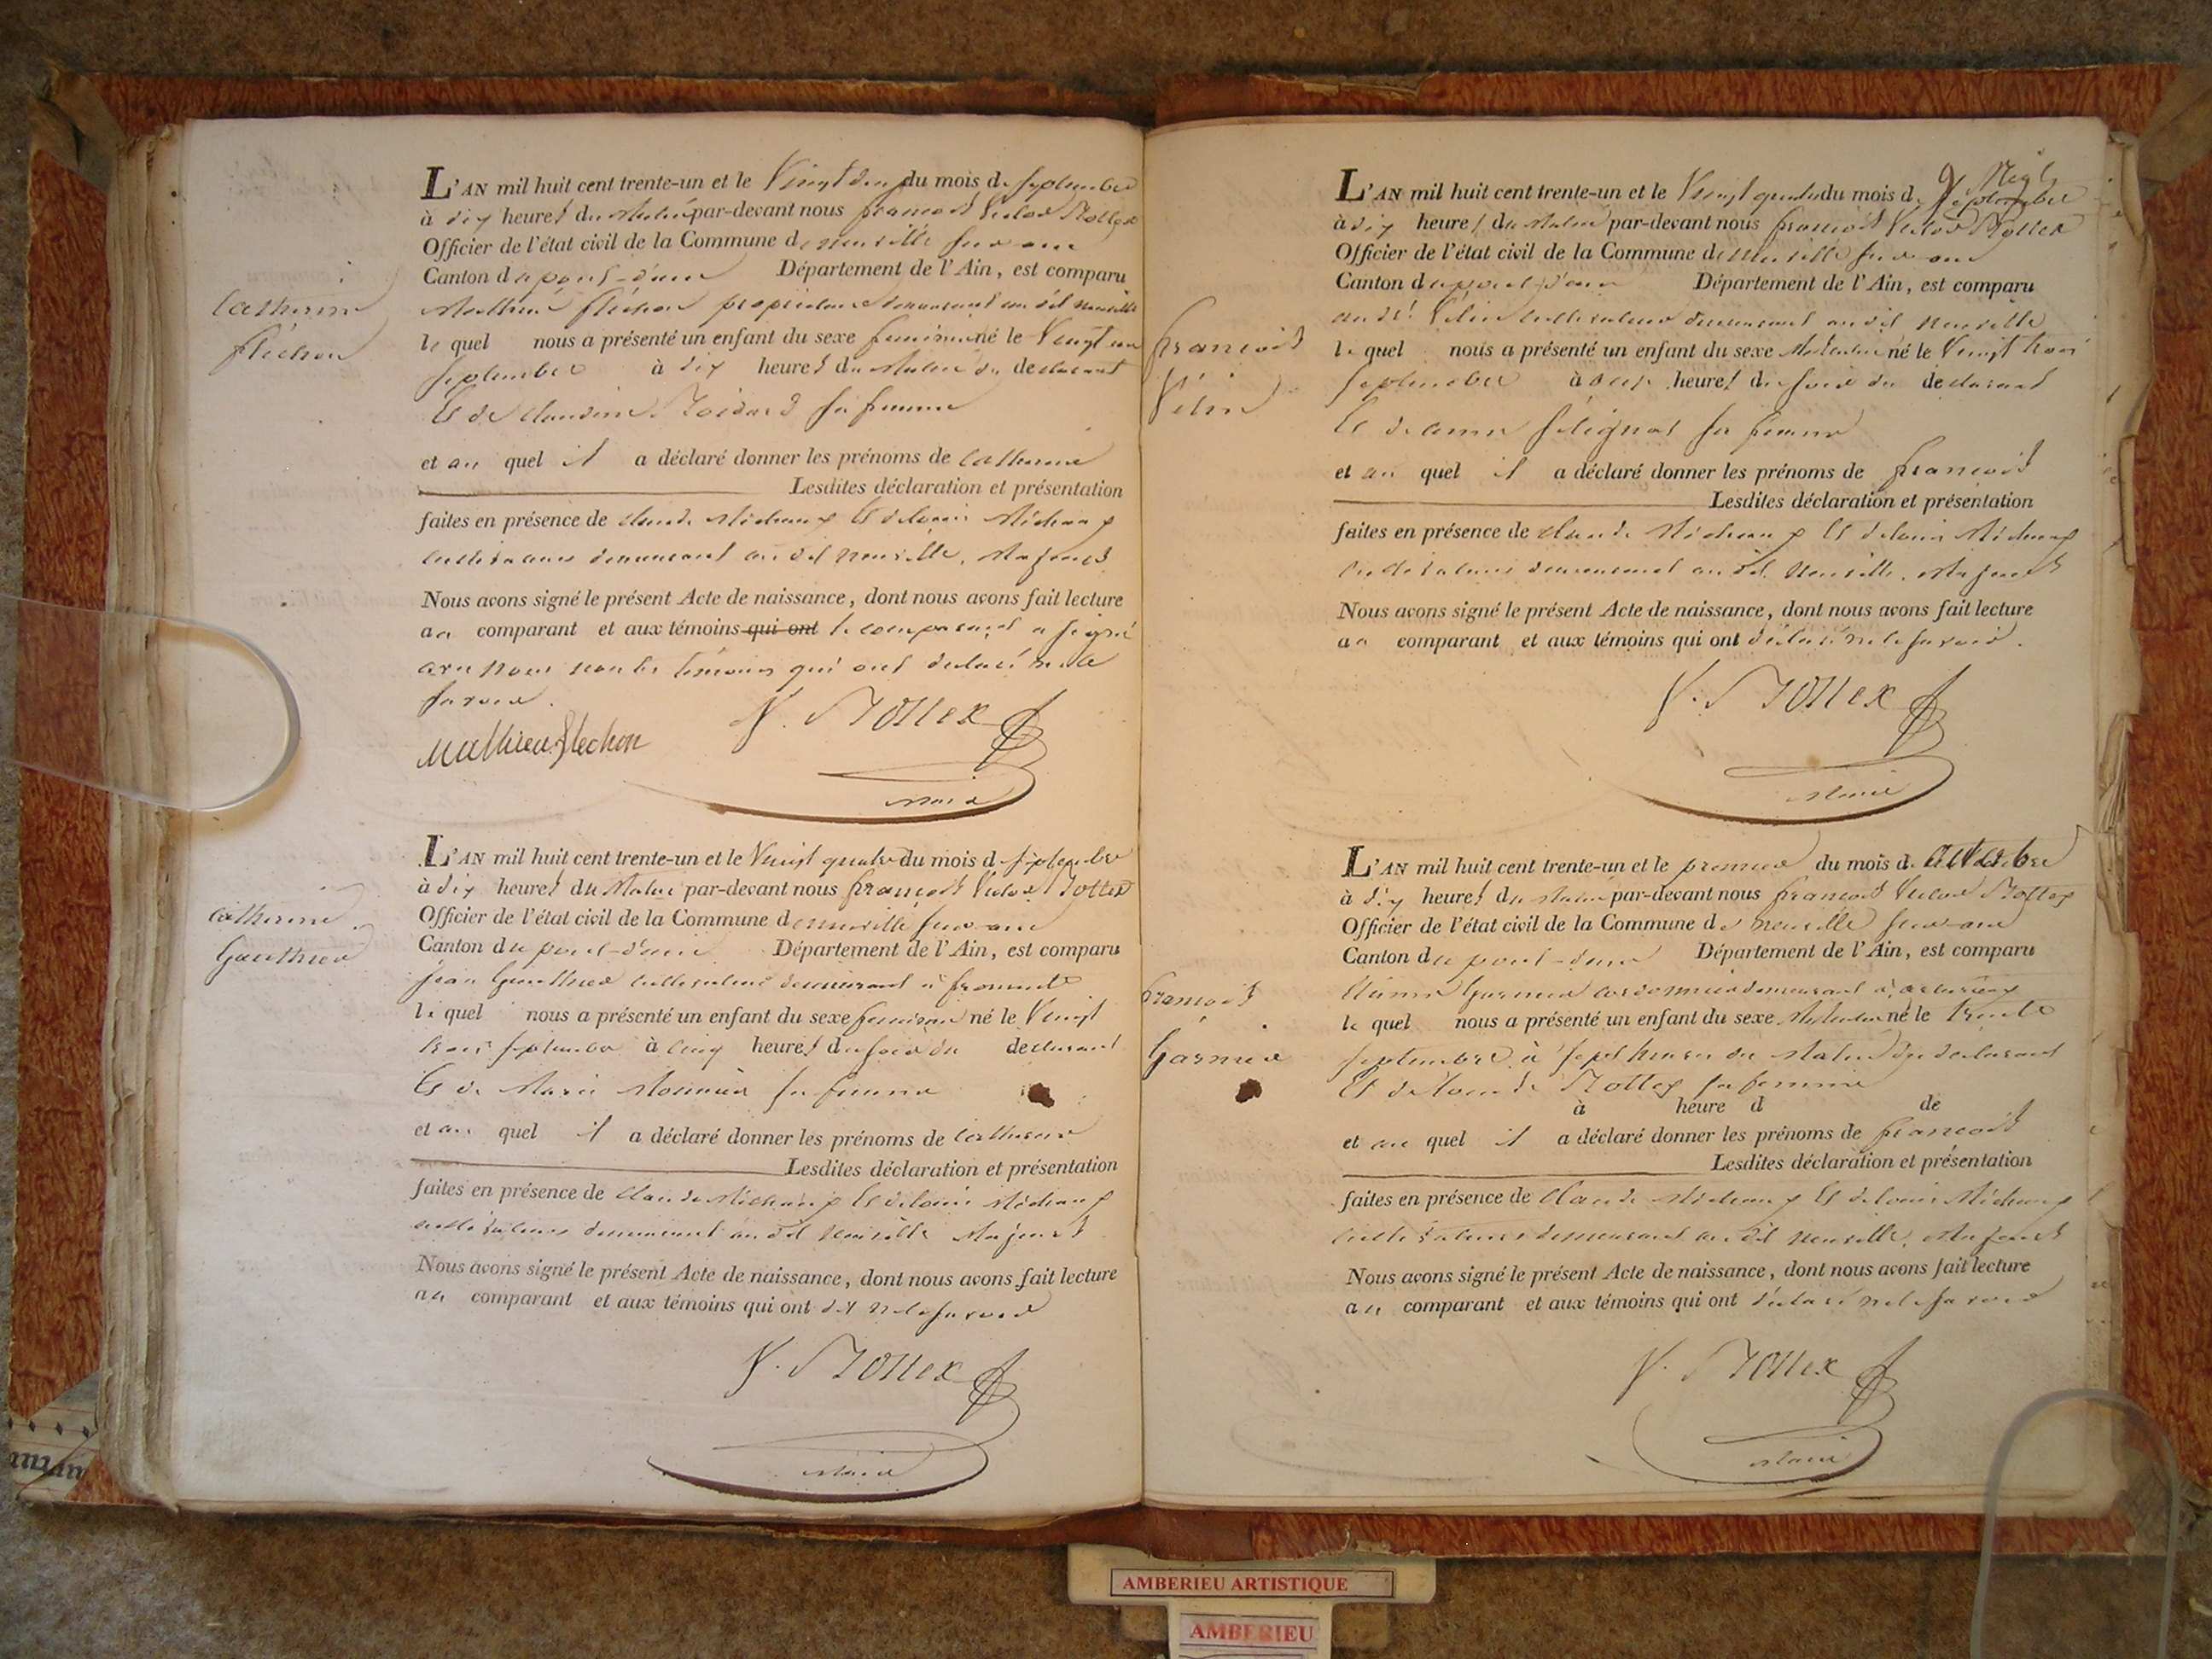 Catherine
fléchon
L'AN mil huit cent trente-un et le Vingt deux du mois de septembre
à dix heures du Matin par-devant nous francois Victor Bottex
Officier de l'état civil de la Commune de neuville sur ain
Canton du pont-d'ain Département de l'Ain, est comparu
Mathieu fléchon propriétaire demeurant au dit neuville
le quel nous a présenté un enfant du sexe feminin né le Vingt un
septembre à dix heures du Matin du declarant
Et de Claudine sa femme
et au quel il a déclaré donner les prénoms de Catherine
Lesdites déclaration et présentation
faites en présence de claude Michaux Et de louis Michaux
cultivateurs demeurant au dit neuville, Majeurs
Nous avons signé le présent Acte de naissance, dont nous avons fait lecture
au comparant et aux témoins qui ont le comparant a signé
avec nous non les témoins qui ont declaré ne le
savoir.
Mathieu flechon V. Bottex
Maire
catherine
Gauthier
L'AN mil huit cent trente-un et le Vingt quatre du mois de septembre
à dix heures du Matin par-devant nous francois Victor Bottex
Officier de l'état civil de la Commune de neuville sur ain
Canton du pont-d'ain Département de l'Ain, est comparu
jean Gauthier cultivateur demeurant à fromente
le quel nous a présenté un enfant du sexe feminin né le Vingt
trois septembre à cinq heures du soir du declarant
Et de Marie Mounier sa femme
et au quel il a déclaré donner les prénoms de Catherine
Lesdites déclaration et présentation
faites en présence de Claude Michaux Et de louis Michaux
cultivateurs demeurant au dit Neuville Majeurs
Nous avons signé le présent Acte de naissance, dont nous avons fait lecture
au comparant et aux témoins qui ont dit ne le savoir
V. Bottex
Maire
francois
Vélin
L'AN mil huit cent trente-un et le Vingt quatre du mois de septembre
à dix heures du Matin par-devant nous francois Victor Bottex
Officier de l'état civil de la Commune de neuville sur ain
Canton du pont-d'ain Département de l'Ain, est comparu
andré Vélin cultivateur demeurant au dit neuville
le quel nous a présenté un enfant du sexe Masculin né le Vingt trois
septembre à onze heures du soir du declarant
Et de anne sélignat sa femme
et au quel il a déclaré donner les prénoms de francois
Lesdites déclaration et présentation
faites en présence de claude Michaux Et de louis Michaux
cultivateurs demeurant au dit Neuville, Majeurs
Nous avons signé le présent Acte de naissance, dont nous avons fait lecture
au comparant et aux témoins qui ont déclaré ne le savoir.
V. Bottex
Maire
francois
Garnier
L'AN mil huit cent trente-un et le premier du mois de octobre
à dix heures du Matin par-devant nous francois Victor Bottex
Officier de l'état civil de la Commune de neuville sur ain
Canton du pont-d'ain Département de l'Ain, est comparu
Garnier cordonnier demeurant à
le quel nous a présenté un enfant du sexe Masculin né le trente
septembre à sept heures du Matin du declarant
Et de Bottex sa femme
à heure d de
et au quel il a déclaré donner les prénoms de francois
Lesdites déclaration et présentation
faites en présence de Claude Michaux Et de louis Michaux
cultivateurs demeurant au dit neuville, Majeurs
Nous avons signé le présent Acte de naissance, dont nous avons fait lecture
au comparant et aux témoins qui ont déclaré ne le savoir
V. Bottex
Maire
AMBERIEU ARTISTIQUE
AMBERIEU